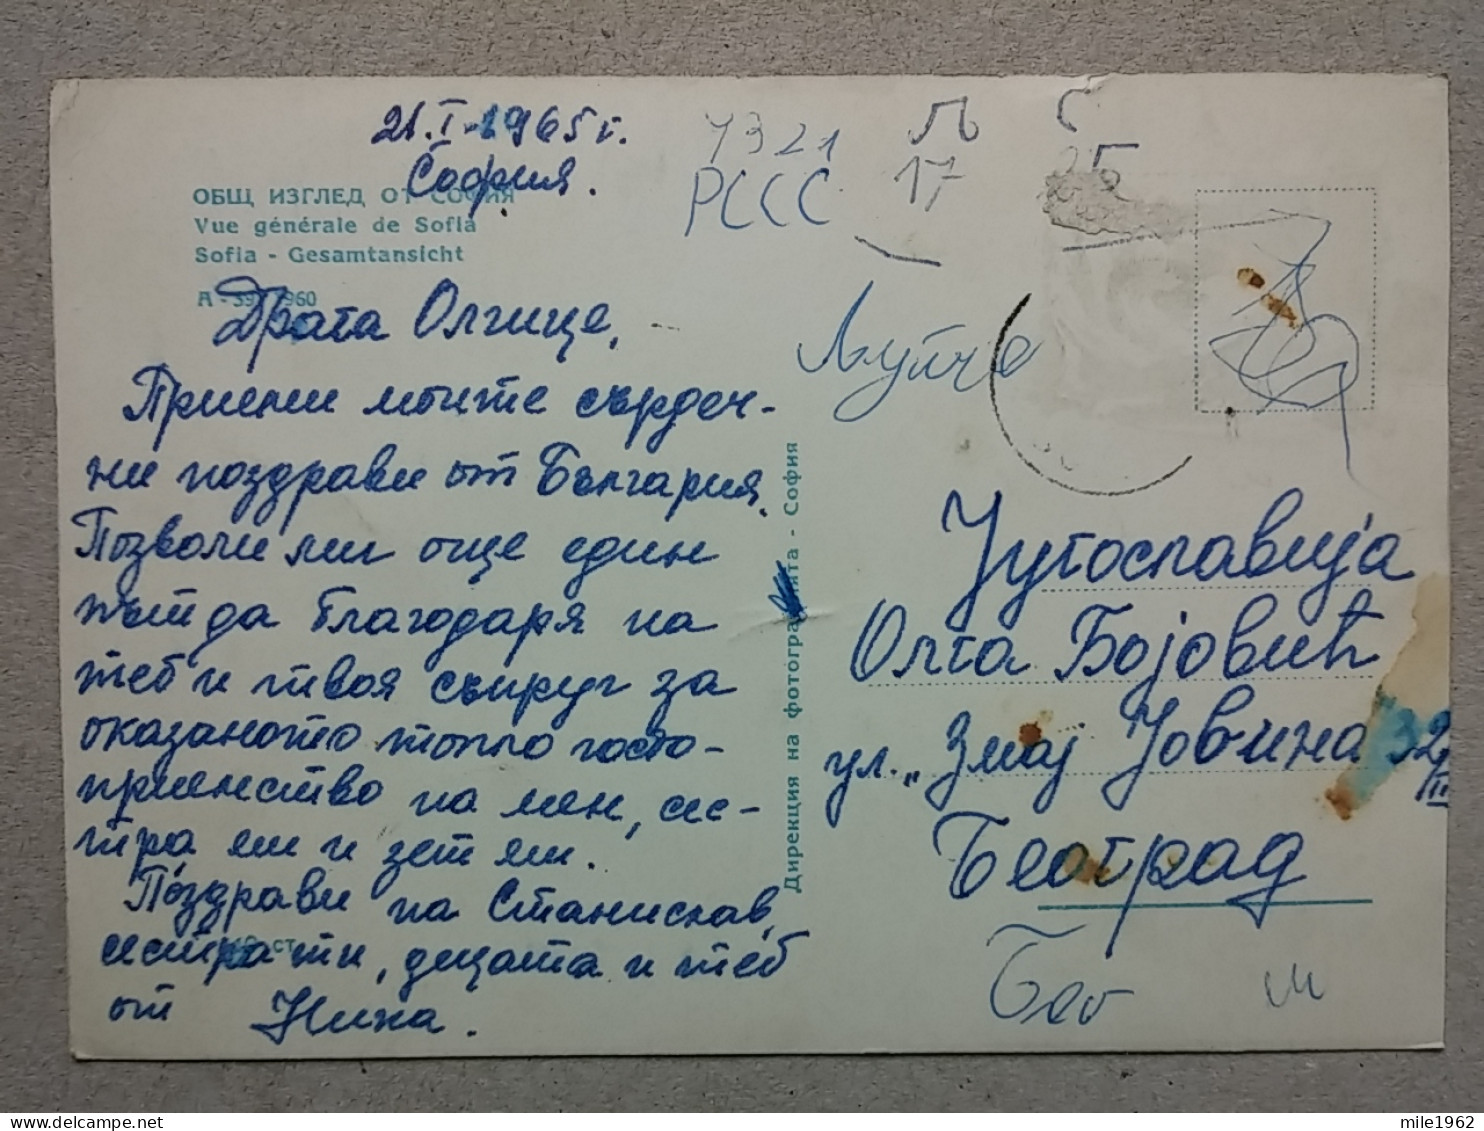 21.I.1965 г.
София.
ОБЩ ИЗГЛЕД ОТ СОФИЯ
Vue générale de Sofia
Sofia - Gesamtansicht
1960
Драга Олгице,
Приеми моите сърдеч-
ни поздрави от България.
Позволи ми още един
път да благодаря на
теб и твоя съпруг за
оказаното топло госто-
приемство на мен, сес-
тра ми и зет ми.
Поздрави на Станислав,
сестра ти, децата и теб
от Нина.
ст.
Дирекция на фотографията - София
7321
РССС
17
25
Југославија
Олга Бојовић
ул. „Змај Јовина 32
III
Београд
Бео
mile1962